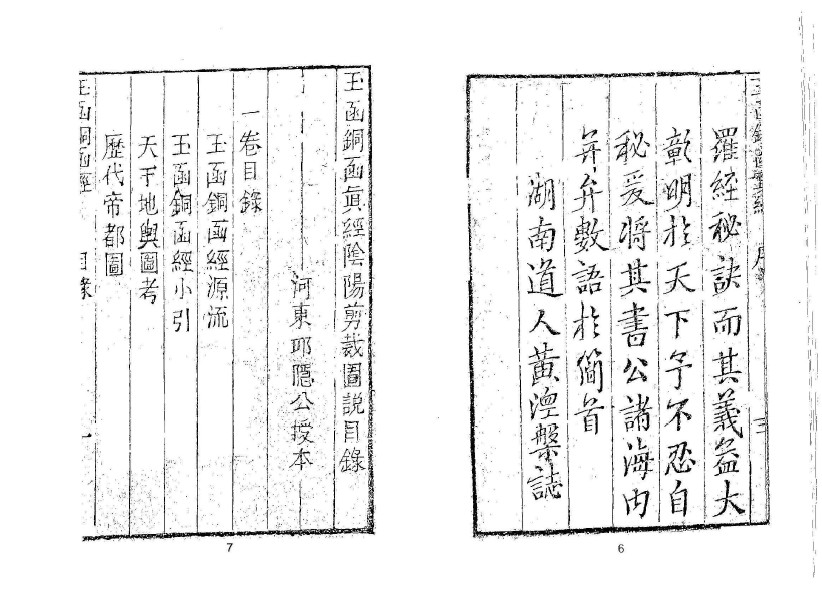 羅經秘訣而其義益大
彰明於天下予不忍自
秘爰將其書公諸海內
并弁數語於簡首
湖南道人黃澄槃誌
三
6
玉函銅函真經陰陽剪裁圖說目錄
河東耶隱公授本
一卷目錄
玉函銅函經源流
玉函銅函經小引
天下地輿圖考
歷代帝都圖
玉函銅函經 目錄 一
7